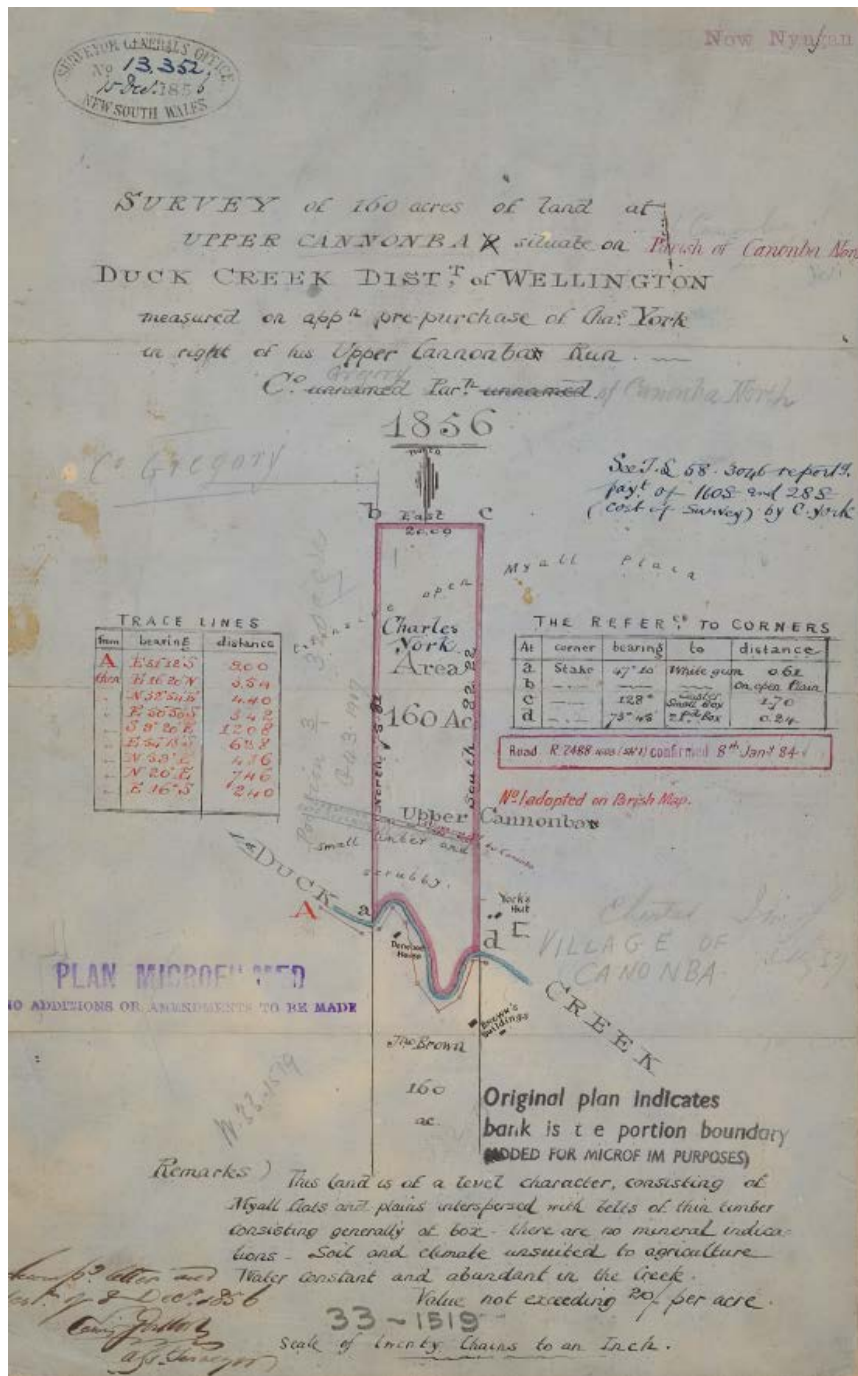 Now Nyngan
SURVEYOR GENERAL'S OFFICE
No 13.352
15 Dec. 1856
NEW SOUTH WALES
SURVEY of 160 acres of land at
UPPER CANNONBAX situate on Parish of Canonba North
DUCK CREEK DIST.T of WELLINGTON
measured on appn pre-purchase of Chas York
in right of his Upper Cannonbax Run.
Gregory
Co. unnamed Parh unnamed of Canonba North
1856
Co Gregory
See J.S. 58.3046 report g.
payt of 160£ and 28£
(cost of Survey) by C. York
b East c
20.00
Myall Plain
open
TRACE LINES
from bearing distance
A E 51°12'S 200
then E 16°20'N 354
N 32°54'E 440
E 50°50'S 342
S 9°20'E 1208
E 54°15'S 628
N 59°E 436
N 20°E 746
E 16°S 240
Charles
York
Area
160 Ac
North 75.82
South 82.22
THE REFERCE TO CORNERS
At corner bearing to distance
a Stake 47°10 White gum 0.62
b On open Plain
c 128° Small Box 1.70
d 75°45 Box 0.24
Road. R 2488 confirmed 8th Jany 84
No 1 adopted on Parish Map.
Upper Cannonbax
small timber and
scrubby.
DUCK
A a
York's
Hut
d E
VILLAGE OF
CANONBA
House
CREEK
Brown's
Buildings
PLAN MICROFILMED
NO ADDITIONS OR AMENDMENTS TO BE MADE
Jno Brown
160
ac.
W.33.1519
Original plan indicates
bank is t e portion boundary
(ADDED FOR MICROF IM PURPOSES)
Remarks) This land is of a level character, consisting of
Myall flats and plains interspersed with belts of thin timber
consisting generally of box - there are no mineral indica-
tions - Soil and climate unsuited to agriculture
Water constant and abundant in the Creek.
Value not exceeding 20/- per acre.
letter and
of 8 Decr. 1856
33-1519
Scale of twenty Chains to an Inch.